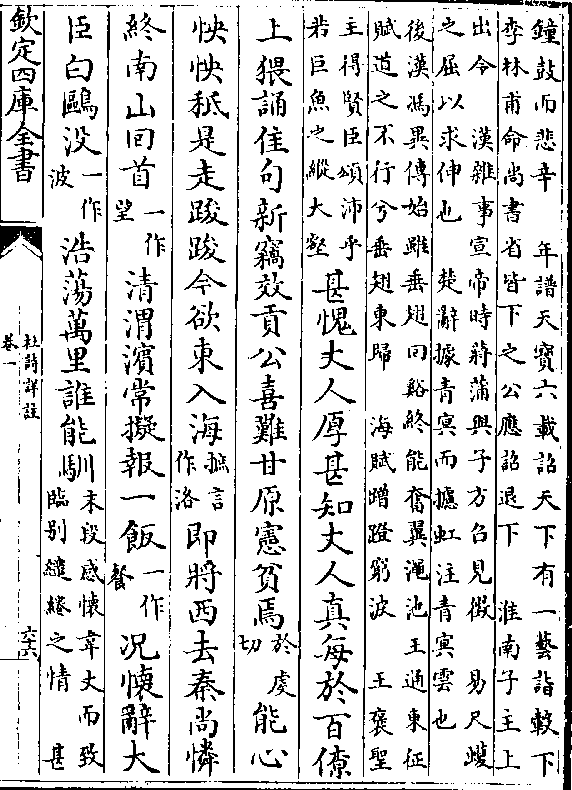 鐘鼓而悲辛 年譜天寶六載詔天下有一藝詣轂下
李林甫命尚書省皆下之公應詔退下 淮南子主上
出令 漢雜事宣帝時蔣蒲與子方召見徵 易尺蠖
之屈以求伸也 楚辭據青冥而攄虹注青冥雲也
後漢馮異傳始雖垂翅回谿終能奮翼澠池 王通東征
賦道之不行兮垂翅東歸 海賦蹭蹬窮波 王褒聖
主得賢臣頌沛乎
若巨魚之縱大壑
甚愧丈人厚甚知丈人真每於百僚
上猥誦佳句新竊效貢公喜難甘原憲貧焉於虔切能心
怏怏秪是走踆踆今欲東入海摭言作洛即將西去秦尚憐
終南山回首一作望清渭濵常擬報一飯一作餐况懷辭大
臣白鷗没一作波浩蕩萬里誰能馴末段感懷韋丈而致臨别繾綣之情 甚
欽定四庫全書
杜詩詳註
卷一
六十六